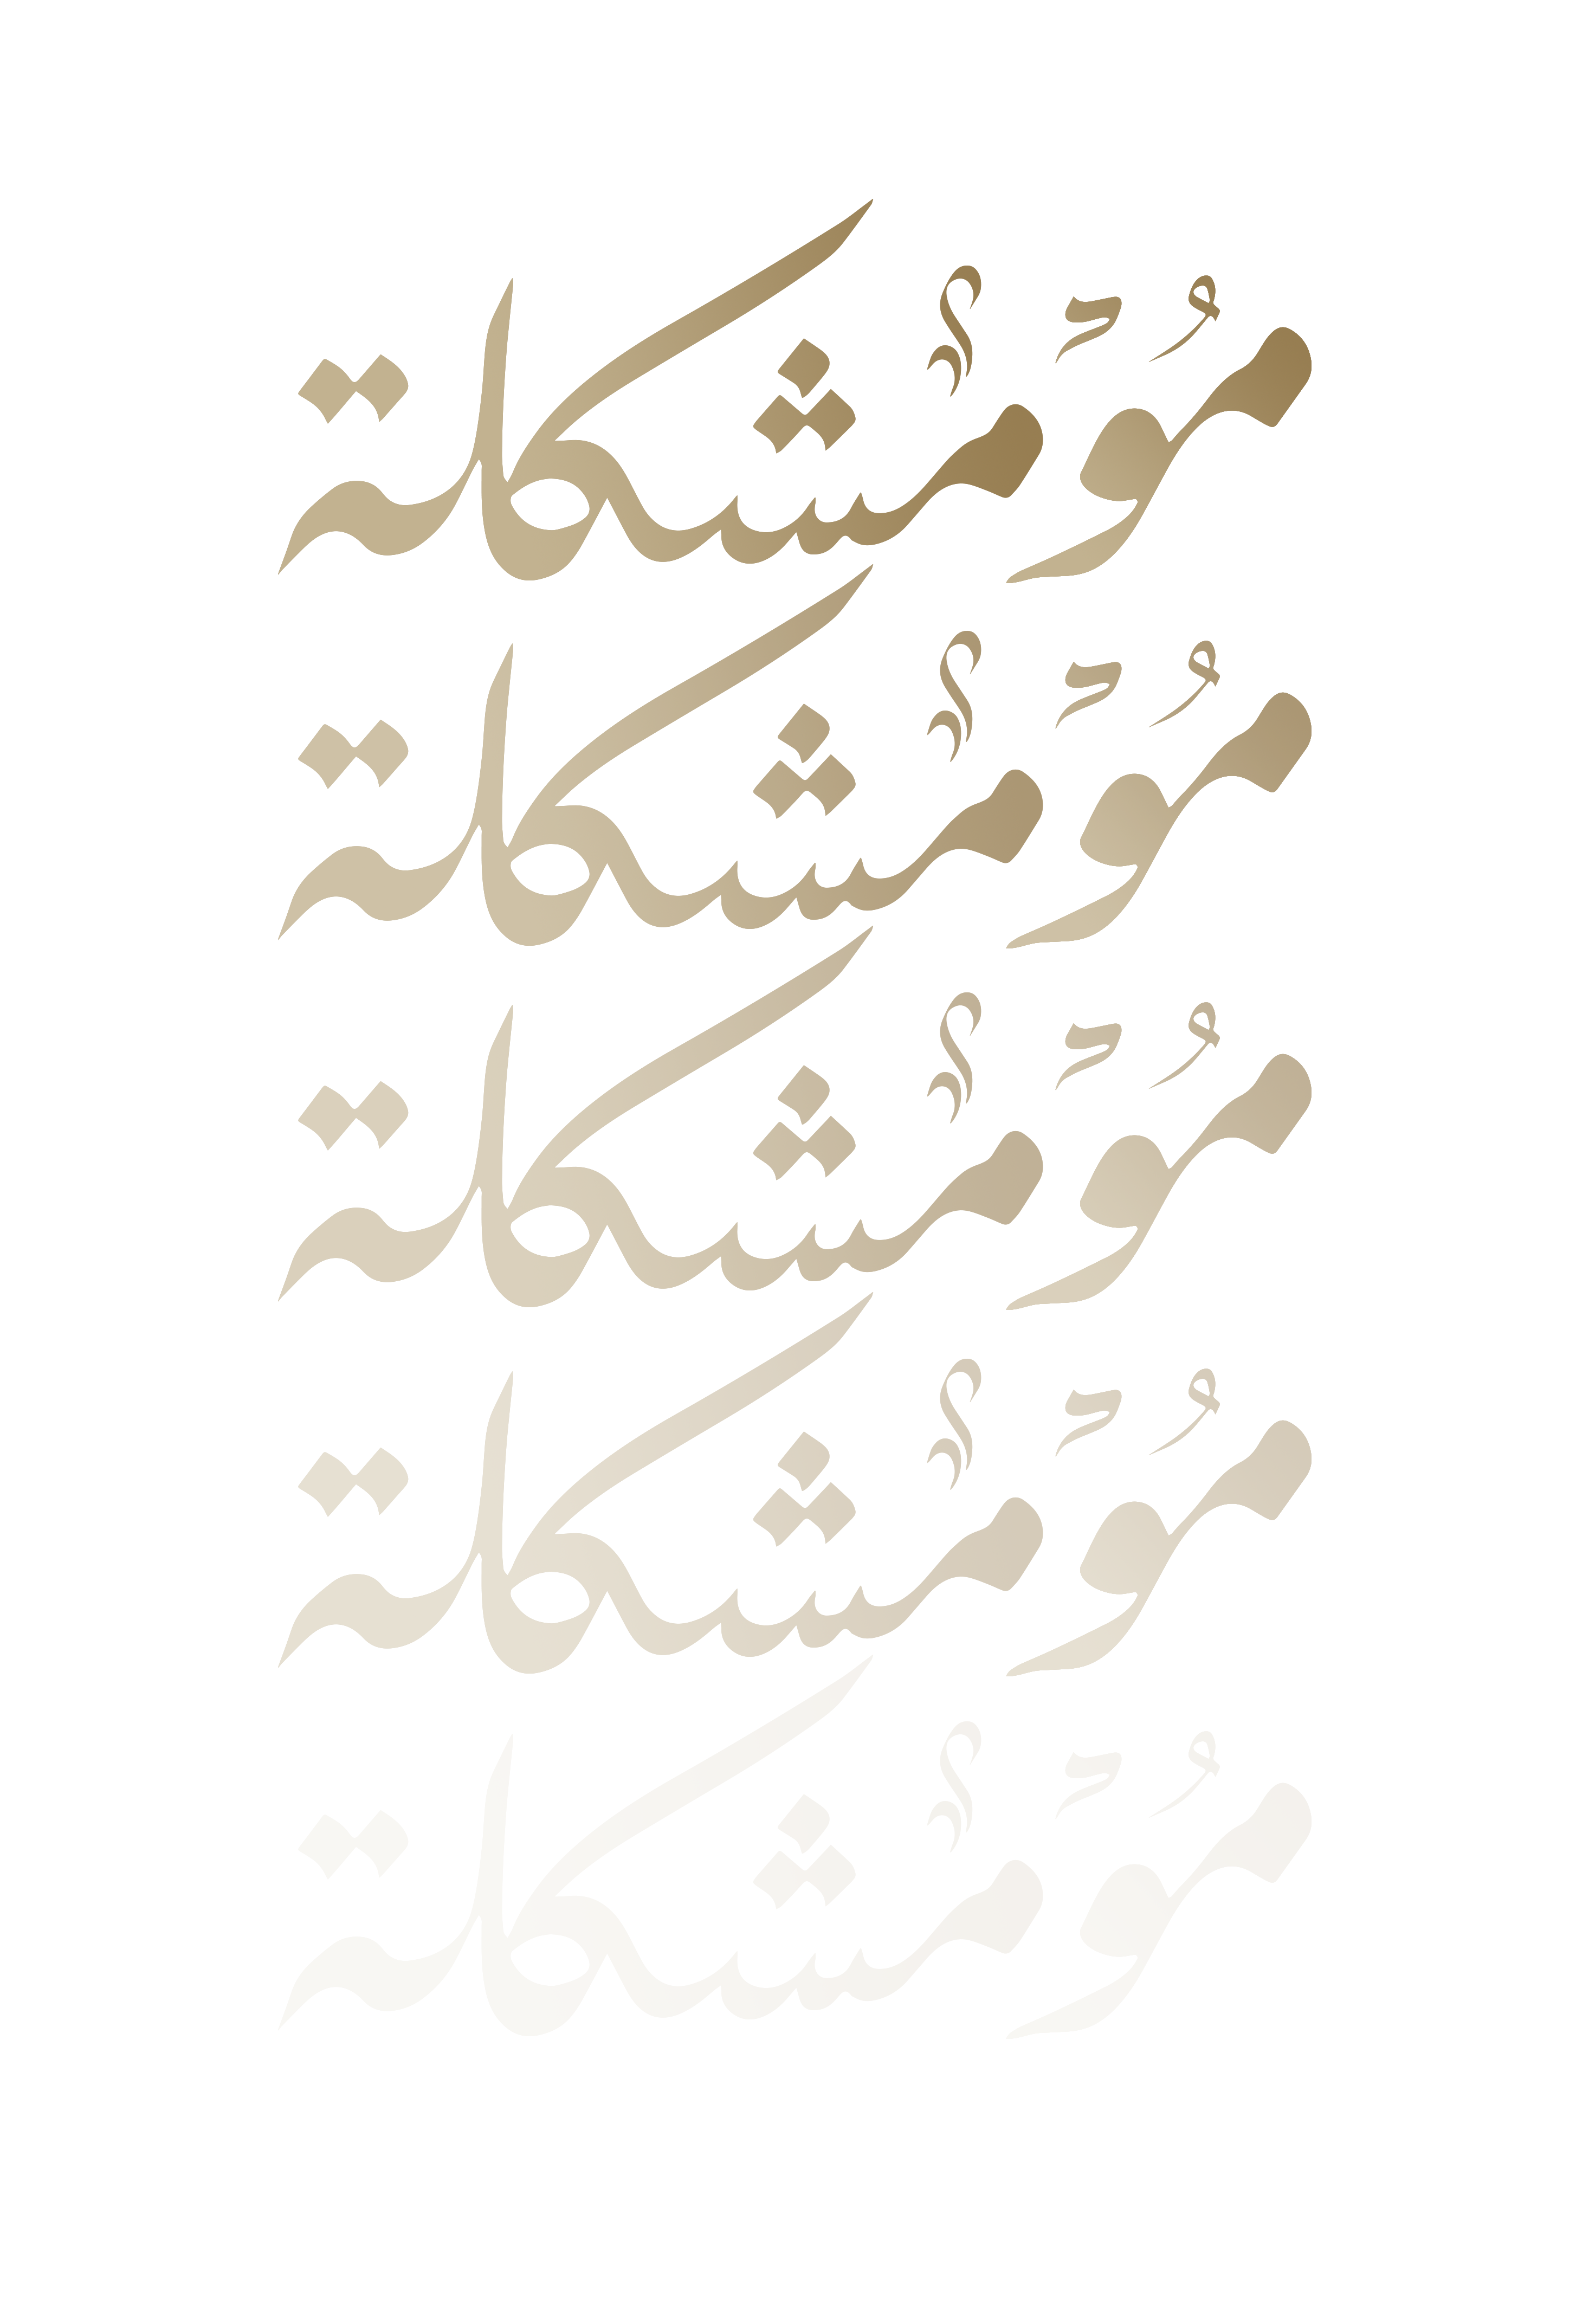 مُو مشكلة
مُو مشكلة
مُو مشكلة
مُو مشكلة
مُو مشكلة